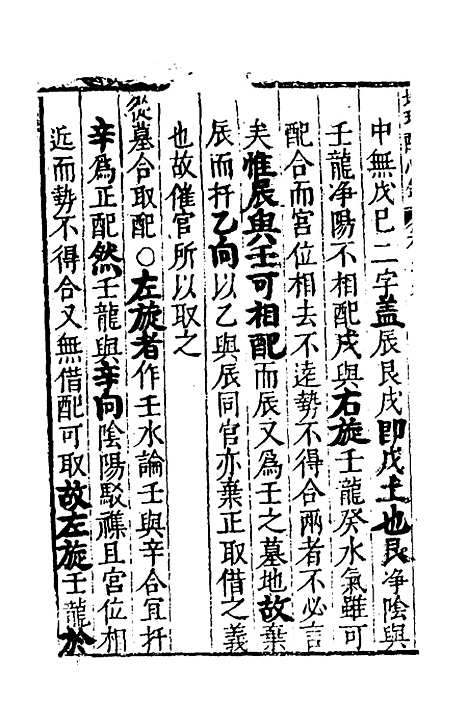 中無戊巳二字盖辰艮戌即戊土也艮净陰與
壬龍净陽不相配戌與右旋壬龍癸水氣雖可
配合而宮位相去不逺勢不得合兩者不必言
矣惟辰與壬可相配而辰又爲壬之墓地故棄
辰而扦乙向以乙與辰同宫亦棄正取借之義
也故催官所以取之
從墓合取配○左旋者作壬水論壬與辛合宜扦
辛爲正配然壬龍與辛向陰陽駁襍且宮位相
近而勢不得合又無借配可取故左旋壬龍於